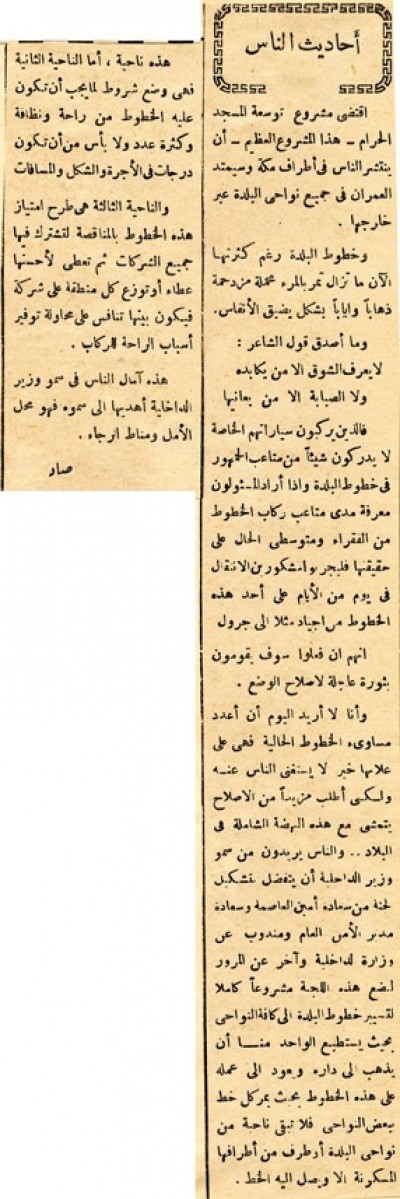 أحاديث الناس
اقتضى مشروع توسعة المسجد
الحرام ــ هذا المشروع العظيم ــ أن
ينتشر الناس فى أطراف مكة وسيمتد
العمران فى جميع نواحى البلدة عبر
خارجها .
وخطوط البلدة رغم كثرتها
الآن ما تزال تمر بالمرء محملة مزدحمة
ذهاباً واياباً بشكل يضيق الأنفاس.
وما أصدق قول الشاعر :
لا يعرف الشوق الا من يكابده
ولا الصبابة الا من يعانيها
فالذين يركبون سياراتهم الخاصة
لا يدركون شيئاً من متاعب الجمهور
فى خطوط البلدة واذا أراد المسئولون
معرفة مدى متاعب ركاب الخطوط
من الفقراء ومتوسطى الحال على
حقيقتها فليجربوا مشكورين الانتقال
فى يوم من الأيام على أحد هذه
الخطوط من اجياد مثلا الى جرول
انهم ان فعلوا سوف يقومون
بثورة عاجلة لاصلاح الوضع .
وأنا لا أريد اليوم أن أعدد
مساوىء الخطوط الحالية فهى على
علاتها خير لا يستغنى الناس عنه
ولكنى أطلب مزيداً من الاصلاح
يتمشى مع هذه النهضة الشاملة فى
البلاد .. والناس يريدون من سمو
وزير الداخلية أن يتفضل بتشكيل
لجنة من سعادة أمين العاصمة وسعادة
مدير الأمن العام ومندوب عن
وزارة لداخلية وآخر عن المرور
لتضع هذه اللجنة مشروعاً كاملا
لتسيير خطوط البلدة الى كافة النواحى
بحيث يستطيع الواحد منا أن
يذهب الى داره ويعود الى عمله
على هذه الخطوط بحيث يمر كل خط
ببعض النواحى فلا تبقى ناحية من
نواحى البلدة أو طرف من أطرافها
المسكونة الا ويصل اليه الخط .
هذه ناحية ، أما الناحية الثانية
فهى وضع شروط لما يجب أن تكون
عليه الخطوط من راحة ونظافة
وكثرة عدد ولا بأس من أن تكون
درجات فى الأجرة والشكل والمسافات
والناحية الثالثة هى طرح امتياز
هذه الخطوط بالمناقصة لتشترك فيها
جميع الشركات ثم تعطى لأحسنها
عطاء أو توزع كل منطقة على شركة
فيكون بينها تنافس على محاولة توفير
أسباب الراحة للركاب .
هذه آمال الناس فى سمو وزير
الداخلية أهديها الى سموه فهو محل
الأمل ومناط الرجاء .
صاد